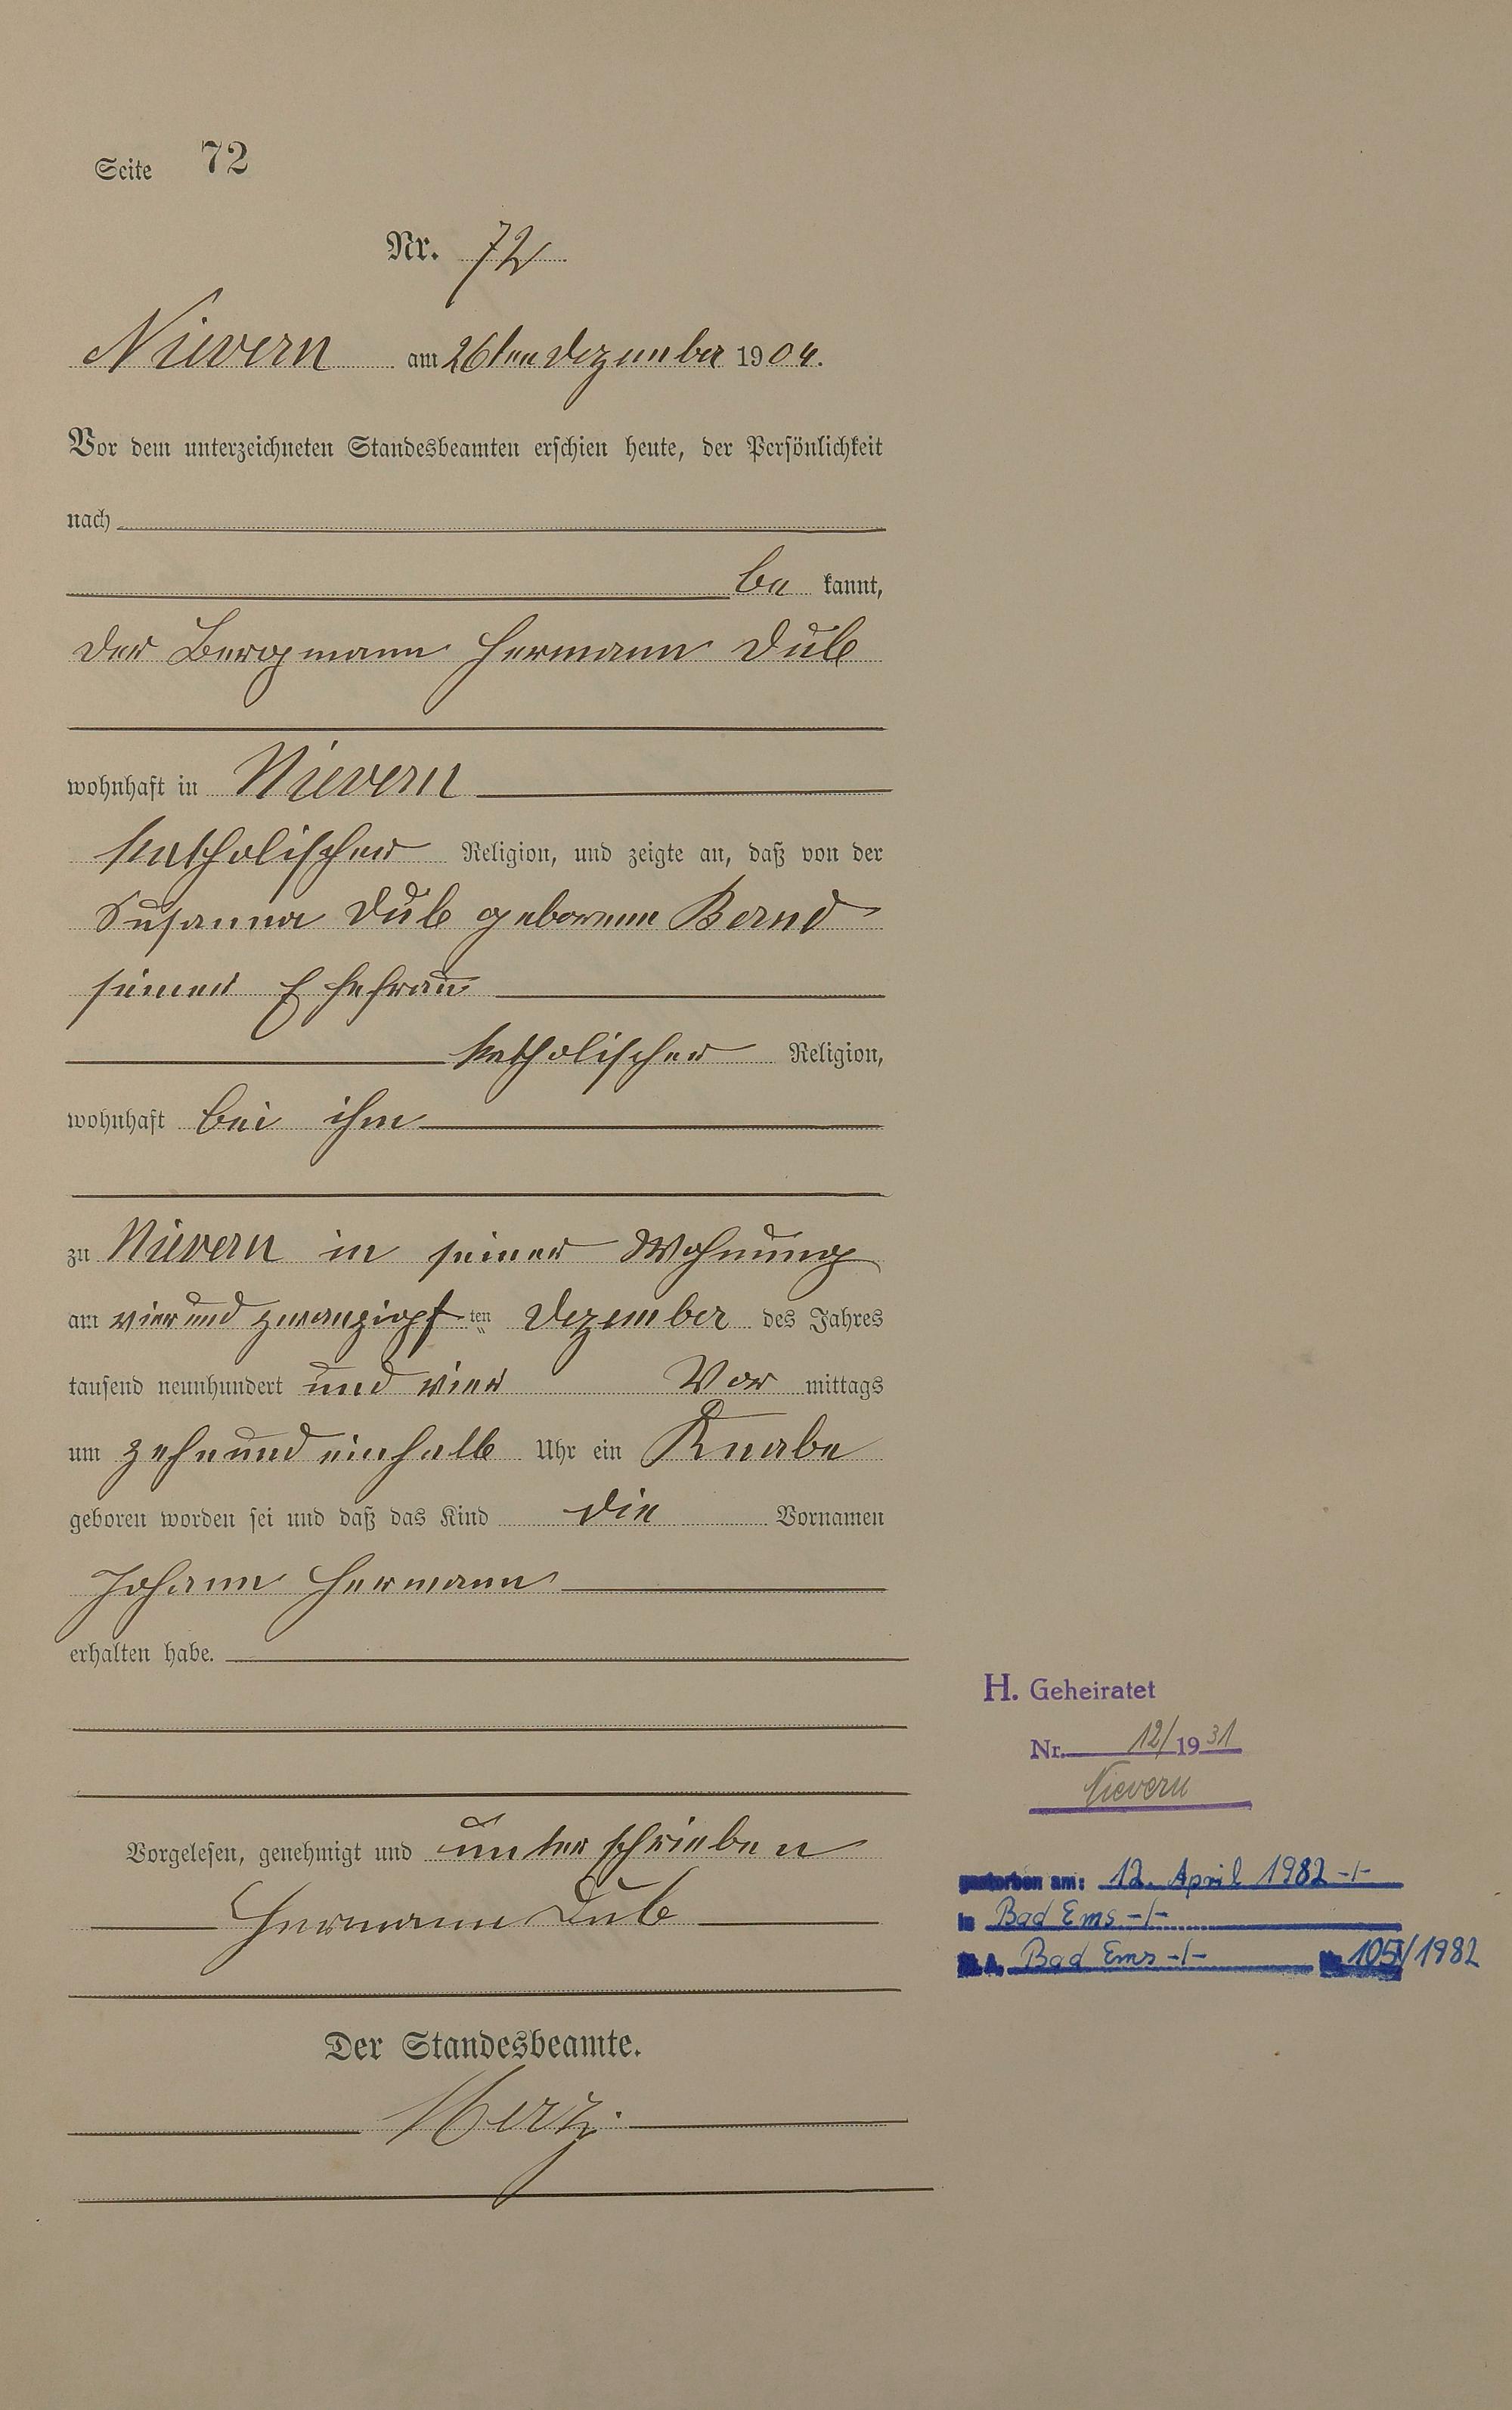 Seite 72
Nr. 72
Nievern am 26ten Dezember 1904.
Vor dem unterzeichneten Standesbeamten erschien heute, der Persönlichkeit
nach
be kannt,
der Bergmann Hermann Dub
wohnhaft in Nievern
katholischer Religion, und zeigte an, daß von der
Susanna Dub geborenen Bernd
seiner Ehefrau
katholischer Religion,
wohnhaft bei ihm
zu Nievern in seiner Wohnung
am vier und zwanzigsten Dezember des Jahres
tausend neunhundert und vier Vor mittags
um zehn und einhalb Uhr ein Knabe
geboren worden sei und daß das Kind die Vornamen
Johann Hermann
erhalten habe.
Vorgelesen, genehmigt und unterschrieben
Hermann Dub
Der Standesbeamte.
H. Geheiratet
Nr. 12/1931
Nievern
gestorben am: 12. April 1982 -/-
in Bad Ems -/-
St. A. Bad Ems -/- Nr. 105/1982